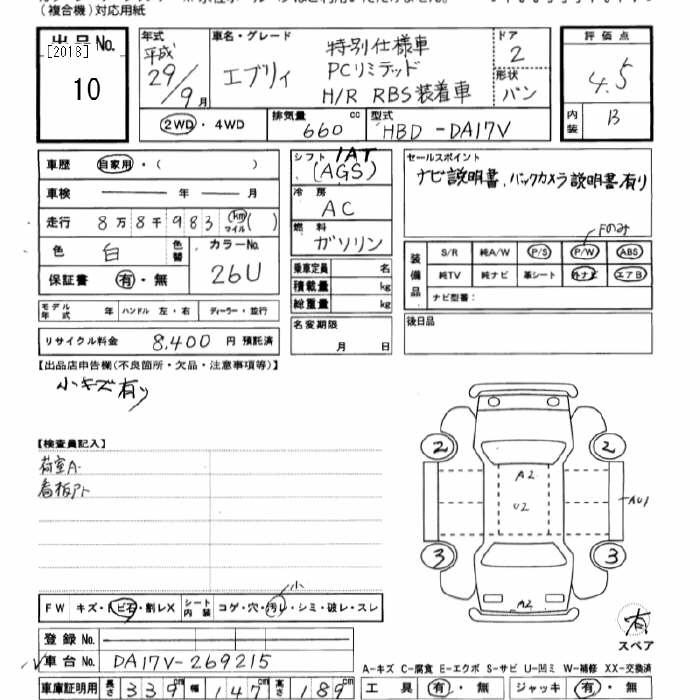 (複合機)対応用紙
出品No.
[2018]
10
年式
平成
29/9月
車名・グレード
エブリィ
特別仕様車
PCリミテッド
H/R RBS装着車
ドア
2
形状
バン
評価点
4.5
内装
B
2WD・4WD
排気量
660 cc
型式
HBD-DA17V
車歴 自家用・( )
車検 年 月
走行 8万8千983 (km マイル)( )
色 白 色替
カラーNo.
26U
保証書 有・無
モデル年式 年 ハンドル 左・右 ディーラー・並行
リサイクル料金 8,400円 預託済
シフト IAT
(AGS)
冷房
AC
燃料
ガソリン
乗車定員 名
積載量 kg
総重量 kg
名変期限
月 日
セールスポイント
ナビ説明書、バックカメラ説明書有り
Fのみ
装備品
S/R 純A/W P/S P/W ABS
純TV 純ナビ 革シート 外ナビ エアB
ナビ型番:
後日品
【出品店申告欄(不良箇所・欠品・注意事項等)】
小キズ有り
【検査員記入】
荷室A-
看板アト
2
2
A2
U2
AU1
3
3
A2
有
スペア
小
FW キズ・トビ石・割レX シート内装 コゲ・穴・汚レ・シミ・破レ・スレ
登録No.
車台No. DA17V-269215
車庫証明用 長さ 339cm 幅 147cm 高さ 189cm
A-キズ C-腐食 E-エクボ S-サビ U-凹ミ W-補修 XX-交換済
工具 有・無 ジャッキ 有・無